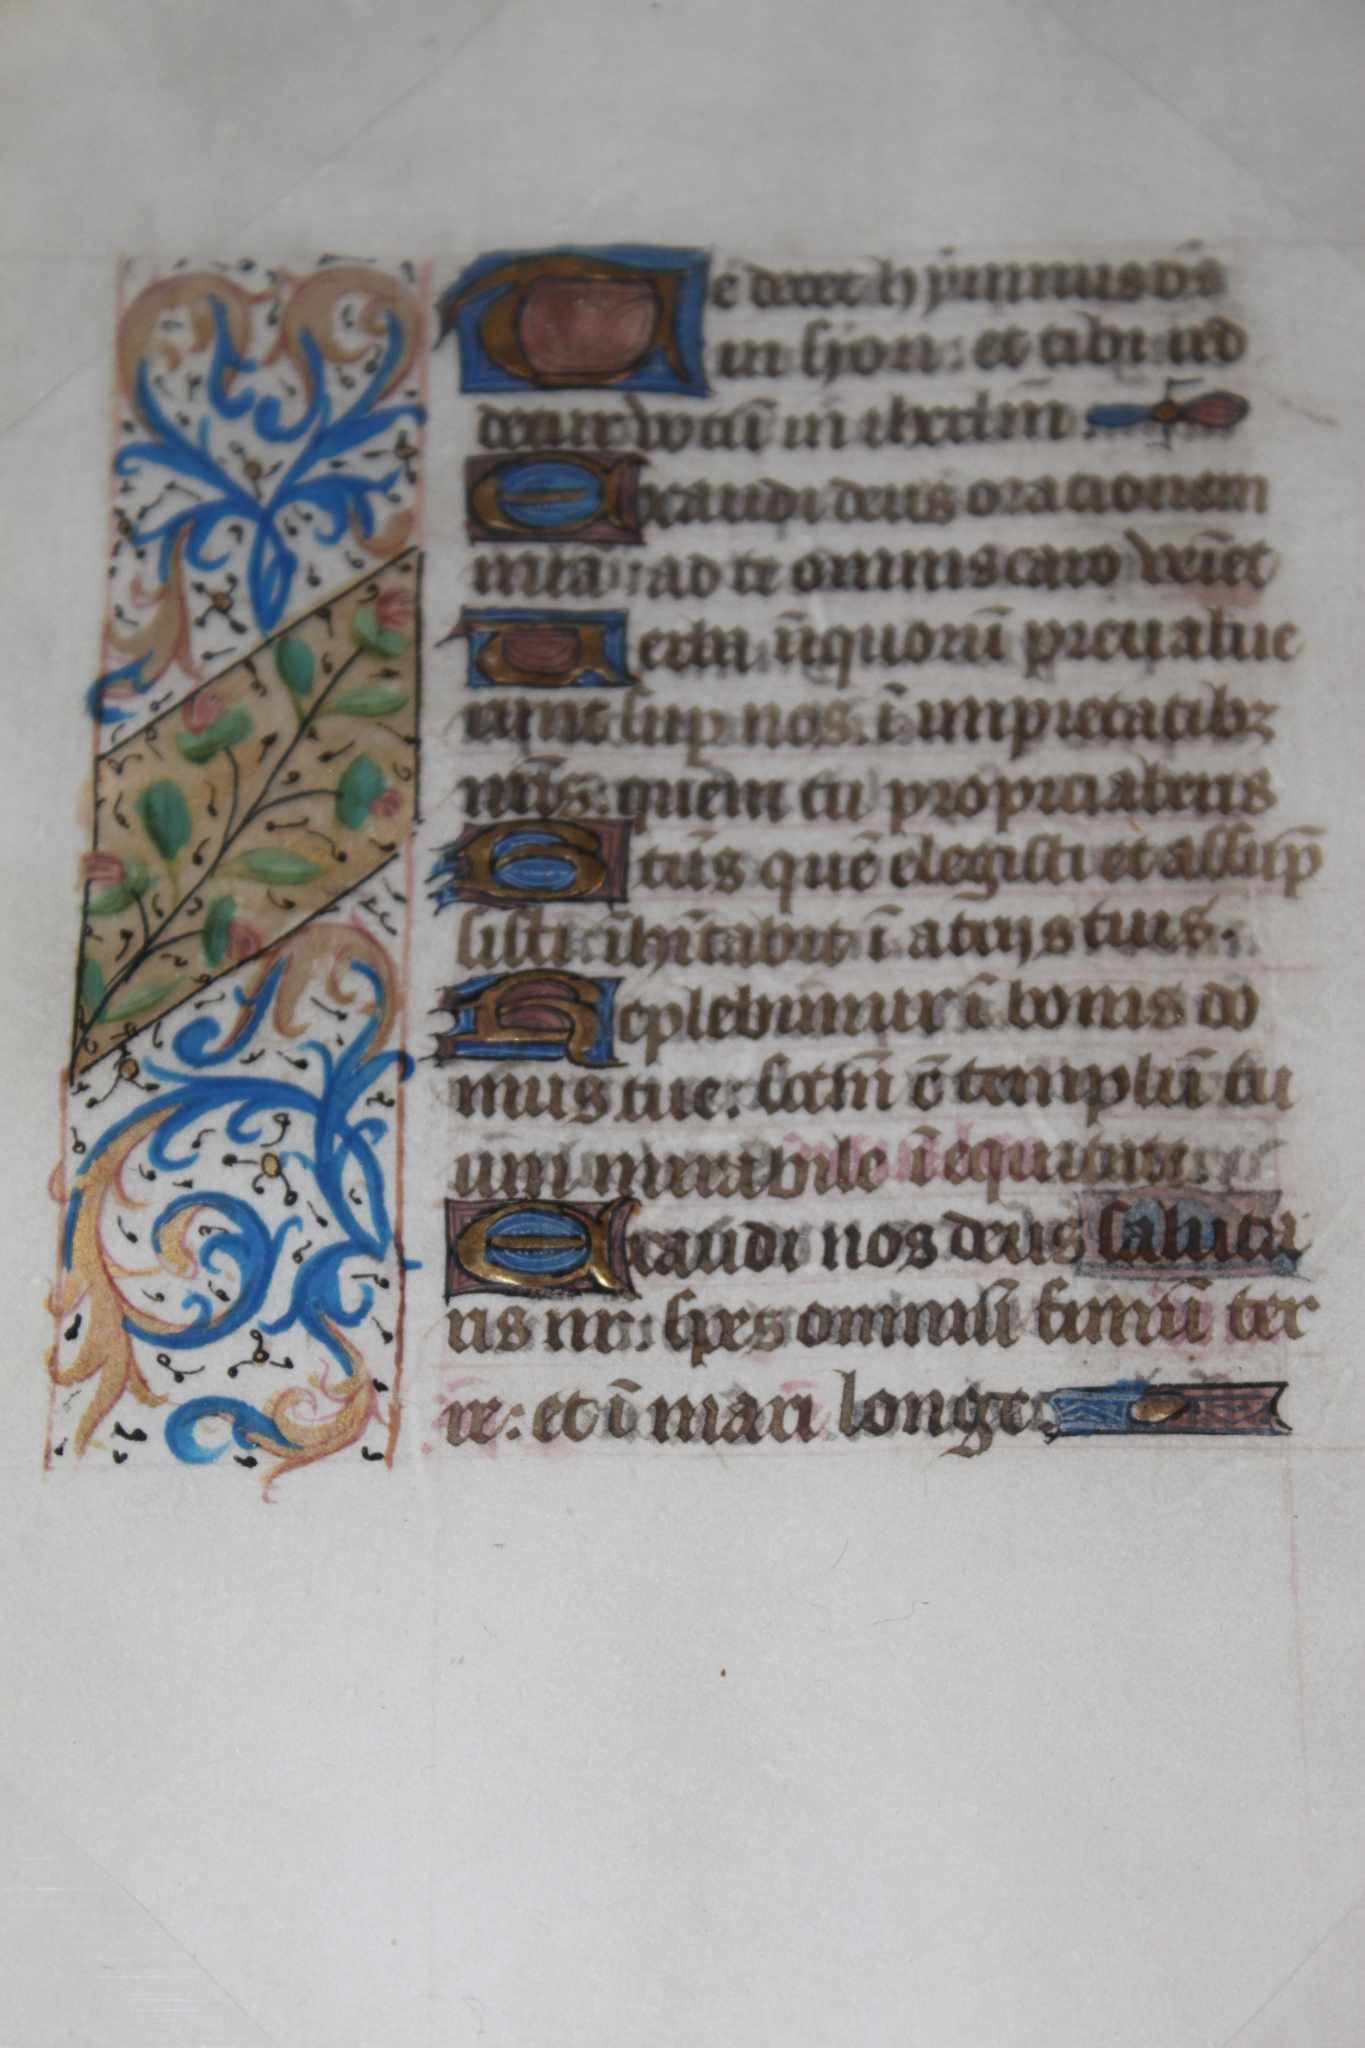 Te decet hỹmnus dñs
in syon: et tibi red
detur votũ in ihrłm.
Exaudi deus orationem
meã: ad te omnis caro veĩet
Verba iñquorũ preualue
runt sup nos: ĩ impietatibz
nr̃is: quem tu propiciaberis
Btũs quẽ elegisti et assup̃
sisti: ĩhĩtabit ĩ atrijs tuis.
Replebimur ĩ bonis do
mus tue: sctm̃ ẽ templũ tu
um mirabile ĩ equitate.
Exaudi nos deus saluta
ris nr̃: spes omniũ finiũ ter
re: et ĩ mari longe.